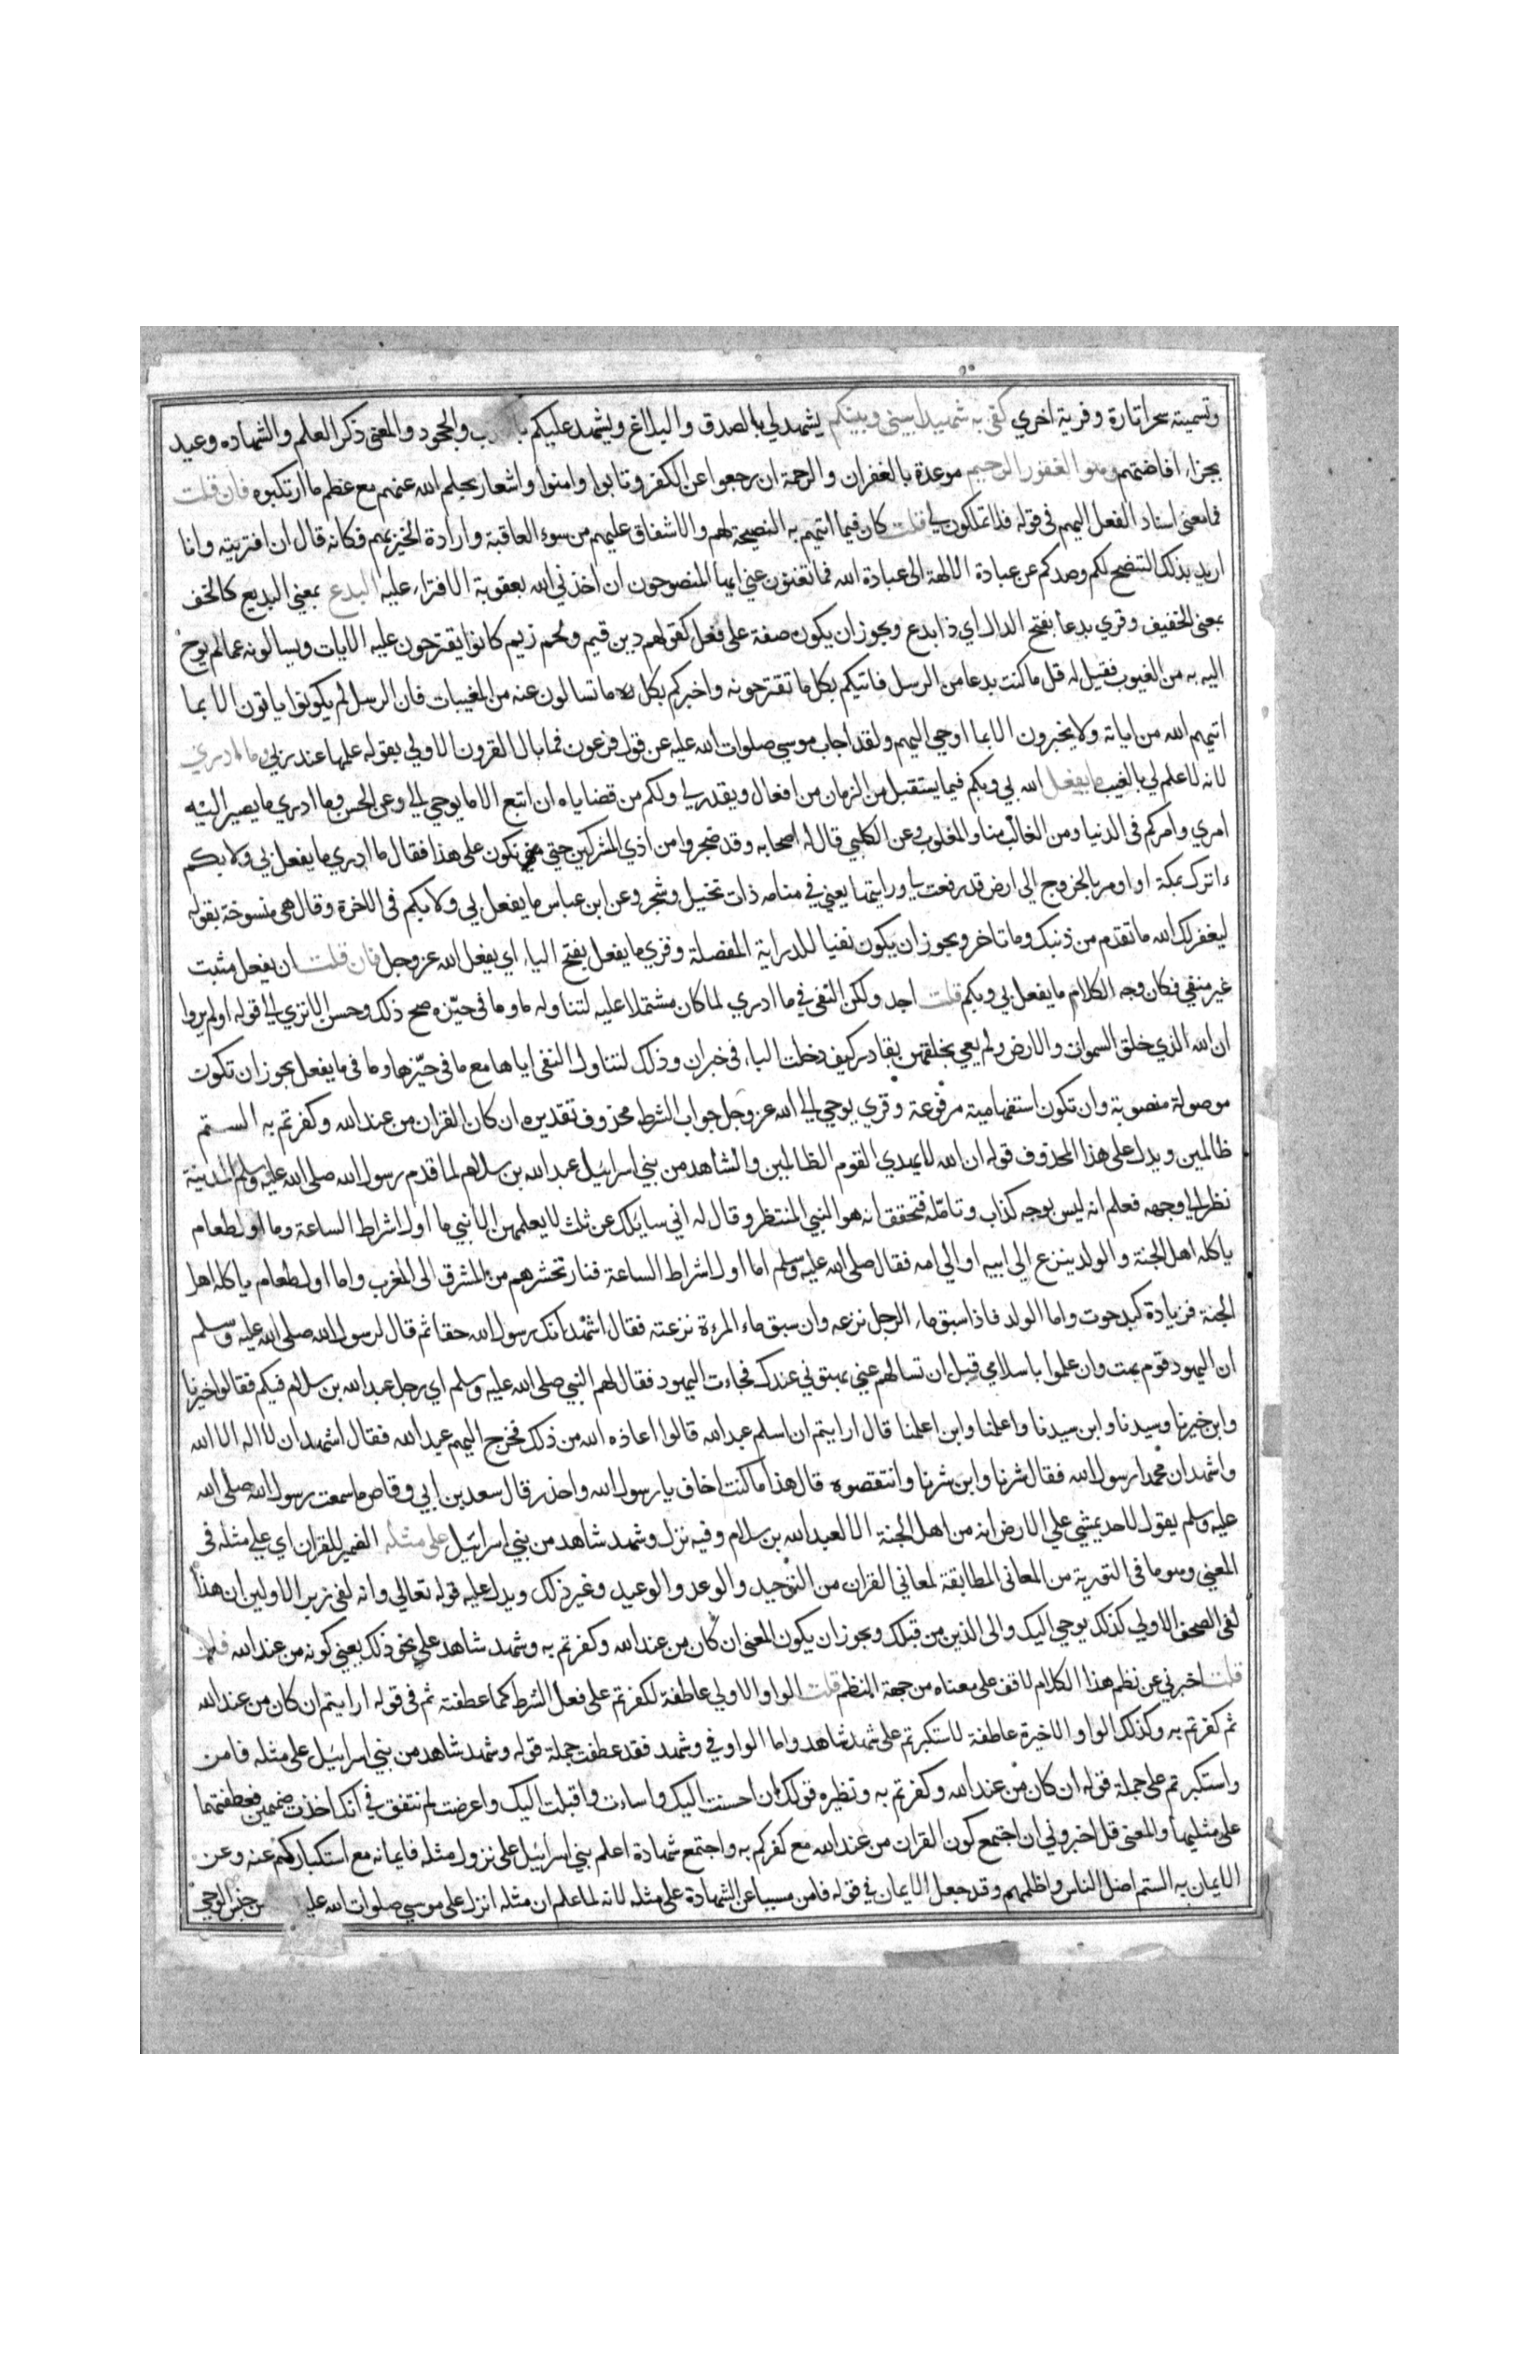 وتسميته سحرا تارة وفرية اخري كفي به شهيدا بيني وبينكم يشهد لي بالصدق والبلاغ ويشهد عليكم والجحود والمعنى ذكر العلم والشهاده وعيد
بجزاء افاضتهم وهو الغفور الرحيم موعدة بالغفران والرحمة ان رجعوا عن الكفر وتابوا وامنوا واشعار بحلم الله عنهم مع عظم ما ارتكبوه فان قلت
فما معنى اسناد الفعل اليهم في قوله فلا تملكون لي قلت كان فيما اتيهم به النصيحة لهم والاشفاق عليهم من سوء العاقبة وارادة الخير بهم فكانه قال ان افتريته وانا
اريد بذلك التنصح لكم وصدكم عن عبادة الالهة الى عبادة الله فما تغنون عني ايها المنصوحون ان اخذني الله بعقوبة الافتراء عليه البدع بمعني البديع كالخف
بمعنى الخفيف وقري بدعا بفتح الدال اي ذا بدع ويجوز ان يكون صفة على فعل كقولهم دين قيم ولحم زيم كانوا يقترحون عليه الايات ويسالونه عما لم يوح
اليه به من الغيوب فقيل له قل ما كنت بدعا من الرسل فاتيكم بكل ما تقترحونه واخبركم بكل ما تسالون عنه من المغيبات فان الرسل لم يكونوا ياتون الا بما
اتيهم الله من اياته ولا يخبرون الا بما اوحي اليهم ولقد اجاب موسي صلوات الله عليه عن قول فرعون فما بال القرون الاولي بقوله علمها عند ربي وما ادري
لانه لا علم لي بالغيب ما يفعل الله بي وبكم فيما يستقبل من الزمان من افعال ويقدر لي ولكم من قضاياه ان اتبع الا ما يوحي لي وعن الحسن وما ادري ما يصير اليه
امري وامركم في الدنيا ومن الغالب منا والمغلوب وعن الكلبي قال له اصحابه وقد ضجروا من اذي المشركين حتي متي نكون على هذا فقال ما ادري ما يفعل بي ولا بكم
ءاترك بمكة او اومر بالخروج الي ارض قد رفعت لي ورايتها يعني في منامه ذات نخيل وشجر وعن ابن عباس ما يفعل بي ولا بكم في الاخرة وقال هي منسوخة بقوله
ليغفر لك الله ما تقدم من ذنبك وما تاخر ويجوز ان يكون نفيا للدراية المفصلة وقري ما يفعل بفتح الياء اي يفعل الله عز وجل فان قلت ان يفعل مثبت
غير منفي فكان وجه الكلام ما يفعل بي وبكم قلت اجل ولكن النفي في ما ادري لما كان مشتملا عليه لتناوله ما وما في حيزه صح ذلك وحسن الا تري الي قوله اولم يروا
ان الله الذي خلق السموات والارض ولم يعي بخلقهن بقادر كيف دخلت الباء في خبر ان وذلك لتناول النفي اياها مع ما في حيزها وما في ما يفعل يجوز ان تكون
موصولة منصوبة وان تكون استفهامية مرفوعة وقري يوحي الي الله عز وجل جواب الشرط محذوف تقديره ان كان القران من عند الله وكفرتم به الستم
ظالمين ويدل على هذا المحذوف قوله ان الله لا يهدي القوم الظالمين والشاهد من بني اسرائيل عبد الله بن سلام لما قدم رسول الله صلى الله عليه وسلم المدينة
نظر الي وجهه فعلم انه ليس بوجه كذاب وتامله فتحقق انه هو النبي المنتظر وقال له اني سايلك عن ثلث لا يعلمهن الا نبي ما اول اشراط الساعة وما اول طعام
ياكله اهل الجنة والولد ينزع الى ابيه او الي امه فقال صلى الله عليه وسلم اما اول اشراط الساعة فنار تحشرهم من المشرق الى المغرب واما اول طعام ياكله اهل
الجنة فزيادة كبد حوت واما الولد فاذا سبق ماء الرجل نزعه وان سبق ماء المرءة نزعته فقال اشهد انك رسول الله حقا ثم قال لرسول الله صلى الله عليه وسلم
ان اليهود قوم بهت وان علموا باسلامي قبل ان تسالهم عني بهتوني عندك فجاءت اليهود فقال لهم النبي صلى الله عليه وسلم اي رجل عبد الله بن سلام فيكم فقالوا خيرنا
وابن خيرنا وسيدنا وابن سيدنا واعلمنا وابن اعلمنا قال ارايتم ان اسلم عبد الله قالوا اعاذه الله من ذلك فخرج اليهم عبد الله فقال اشهد ان لا اله الا الله
واشهد ان محمدا رسول الله فقال شرنا وابن شرنا وانتقصوه قال هذا ما كنت اخاف يا رسول الله واحذر قال سعد بن ابي وقاص ما سمعت رسول الله صلى الله
عليه وسلم يقول لاحد يمشي علي الارض انه من اهل الجنة الا لعبد الله بن سلام وفيه نزل وشهد شاهد من بني اسرائيل علي مثله الضمير للقران اي علي مثله في
المعني وهو ما في التورية من المعاني المطابقة لمعاني القران من التوحيد والوعد والوعيد وغير ذلك ويدل عليه قوله تعالي وانه لفي زبر الاولين ان هذا
لفي الصحف الاولي كذلك يوحي اليك والى الذين من قبلك ويجوز ان يكون المعني ان كان من عند الله وكفرتم به وشهد شاهد علي نحو ذلك يعني كونه من عند الله فان
قلت اخبرني عن نظم هذا الكلام لاقف على معناه من جهة النظم قلت الواو الاولي عاطفة لكفرتم على فعل الشرط كما عطفته ثم في قوله ارايتم ان كان من عند الله
ثم كفرتم به وكذلك الواو الاخيرة عاطفة لاستكبرتم على شهد شاهد واما الواو في وشهد فقد عطفت جملة قوله وشهد شاهد من بني اسرائيل على مثله فامن
واستكبرتم على جملة قوله ان كان من عند الله وكفرتم به ونظيره قولك ان احسنت اليك واسات واقبلت اليك واعرضت لم نتفق في انك اخذت ضميمين فعطفتهما
على مثليهما والمعنى قل اخبروني ان اجتمع كون القران من عند الله مع كفركم به واجتمع شهادة اعلم بني اسرائيل على نزول مثله فايمانه مع استكباركم عنه وعن
الايمان به الستم اضل الناس واظلمهم وقد جعل الايمان في قوله فامن مسببا عن الشهادة على مثله لانه لما علم ان مثله انزل على موسي صلوات الله عليه من جنس الوحي